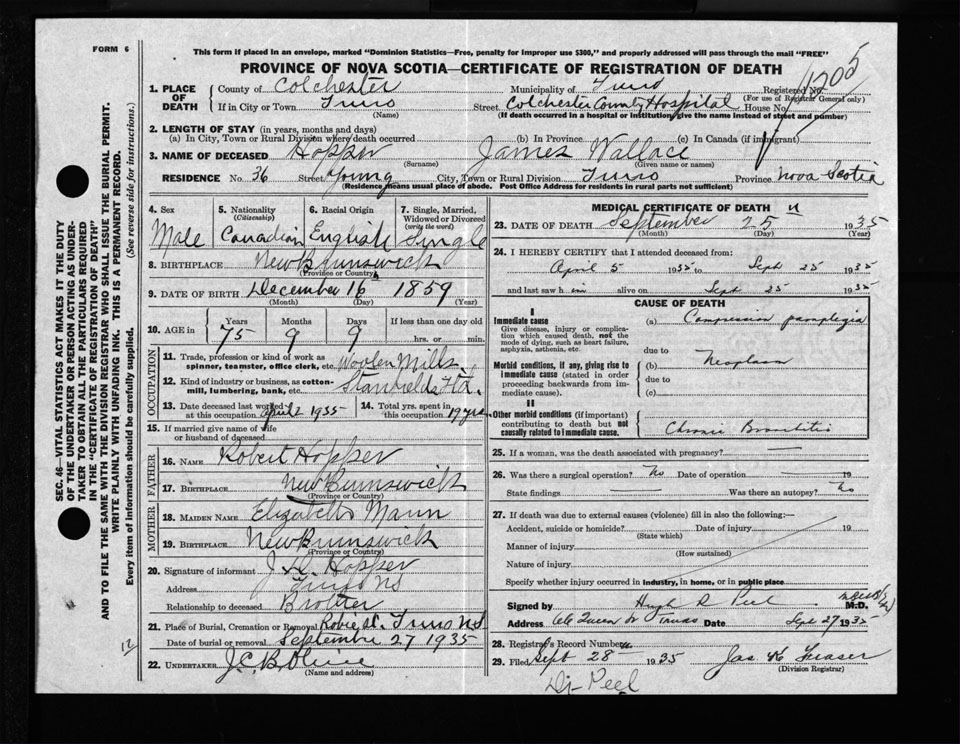 FORM 6
This form if placed in an envelope, marked "Dominion Statistics—Free, penalty for improper use $300," and properly addressed will pass through the mail "FREE"
PROVINCE OF NOVA SCOTIA—CERTIFICATE OF REGISTRATION OF DEATH
1205
1. PLACE OF DEATH
County of Colchester Municipality of Truro Registered No.
(For use of Registrar General only)
If in City or Town Truro Street Colchester County Hospital House No.
(Name) (If death occurred in a hospital or institution, give the name instead of street and number)
2. LENGTH OF STAY (in years, months and days)
(a) In City, Town or Rural Division where death occurred (b) In Province (c) In Canada (if immigrant)
3. NAME OF DECEASED Hopper James Wallace
(Surname) (Given name or names)
RESIDENCE No. 36 Street Young City, Town or Rural Division Truro Province Nova Scotia
(Residence means usual place of abode. Post Office Address for residents in rural parts not sufficient)
4. Sex
Male
5. Nationality
(Citizenship)
Canadian
6. Racial Origin
English
7. Single, Married, Widowed or Divorced
(write the word)
Single
8. BIRTHPLACE New Brunswick
(Province or Country)
9. DATE OF BIRTH December 16 1859
(Month) (Day) (Year)
10. AGE in
Years Months Days If less than one day old
75 9 9 hrs. or min.
OCCUPATION
11. Trade, profession or kind of work as spinner, teamster, office clerk, etc. Woolen Mills
12. Kind of industry or business, as cotton-mill, lumbering, bank, etc. Stanfields Ltd.
13. Date deceased last worked at this occupation April 2 1935
14. Total yrs. spent in this occupation 19 yrs
15. If married give name of wife or husband of deceased
FATHER
16. NAME Robert Hopper
17. BIRTHPLACE New Brunswick
(Province or Country)
MOTHER
18. MAIDEN NAME Elizabeth Mann
19. BIRTHPLACE New Brunswick
(Province or Country)
20. Signature of informant Hopper
Address Truro NS
Relationship to deceased Brother
21. Place of Burial, Cremation or Removal Robie St. Truro NS
Date of burial or removal September 27 1935
22. UNDERTAKER
(Name and address)
MEDICAL CERTIFICATE OF DEATH
23. DATE OF DEATH September 25 1935
(Month) (Day) (Year)
24. I HEREBY CERTIFY that I attended deceased from:
April 5 1935 to Sept 25 1935
and last saw him alive on Sept 25 1935
CAUSE OF DEATH
I
Immediate cause (a) Compression paraplegia
Give disease, injury or complication which caused death, not the mode of dying, such as heart failure, asphyxia, asthenia, etc.
due to
Morbid conditions, if any, giving rise to immediate cause (stated in order proceeding backwards from immediate cause).
(b) Neoplasm
due to
(c)
II
Other morbid conditions (if important) contributing to death but not causally related to immediate cause.
Chronic Bronchitis
25. If a woman, was the death associated with pregnancy?
26. Was there a surgical operation? No Date of operation 19
State findings Was there an autopsy? No
27. If death was due to external causes (violence) fill in also the following:—
Accident, suicide or homicide? Date of injury 19
(State which)
Manner of injury
(How sustained)
Nature of injury
Specify whether injury occurred in industry, in home, or in public place
Signed by Hugh R Peel M.D.
Address Queen St Truro Date Sept 27 1935
28. Registrar's Record Number
29. Filed Sept 28 1935 Jas K Fraser
(Division Registrar)
Dr Peel
SEC. 46—VITAL STATISTICS ACT MAKES IT THE DUTY
OF THE UNDERTAKER OR PERSON ACTING AS UNDERTAKER
TO OBTAIN ALL THE PARTICULARS REQUIRED
IN THE "CERTIFICATE OF REGISTRATION OF DEATH"
AND TO FILE THE SAME WITH THE DIVISION REGISTRAR WHO SHALL ISSUE THE BURIAL PERMIT.
WRITE PLAINLY WITH UNFADING INK. THIS IS A PERMANENT RECORD.
Every item of information should be carefully supplied. (See reverse side for instructions.)
12